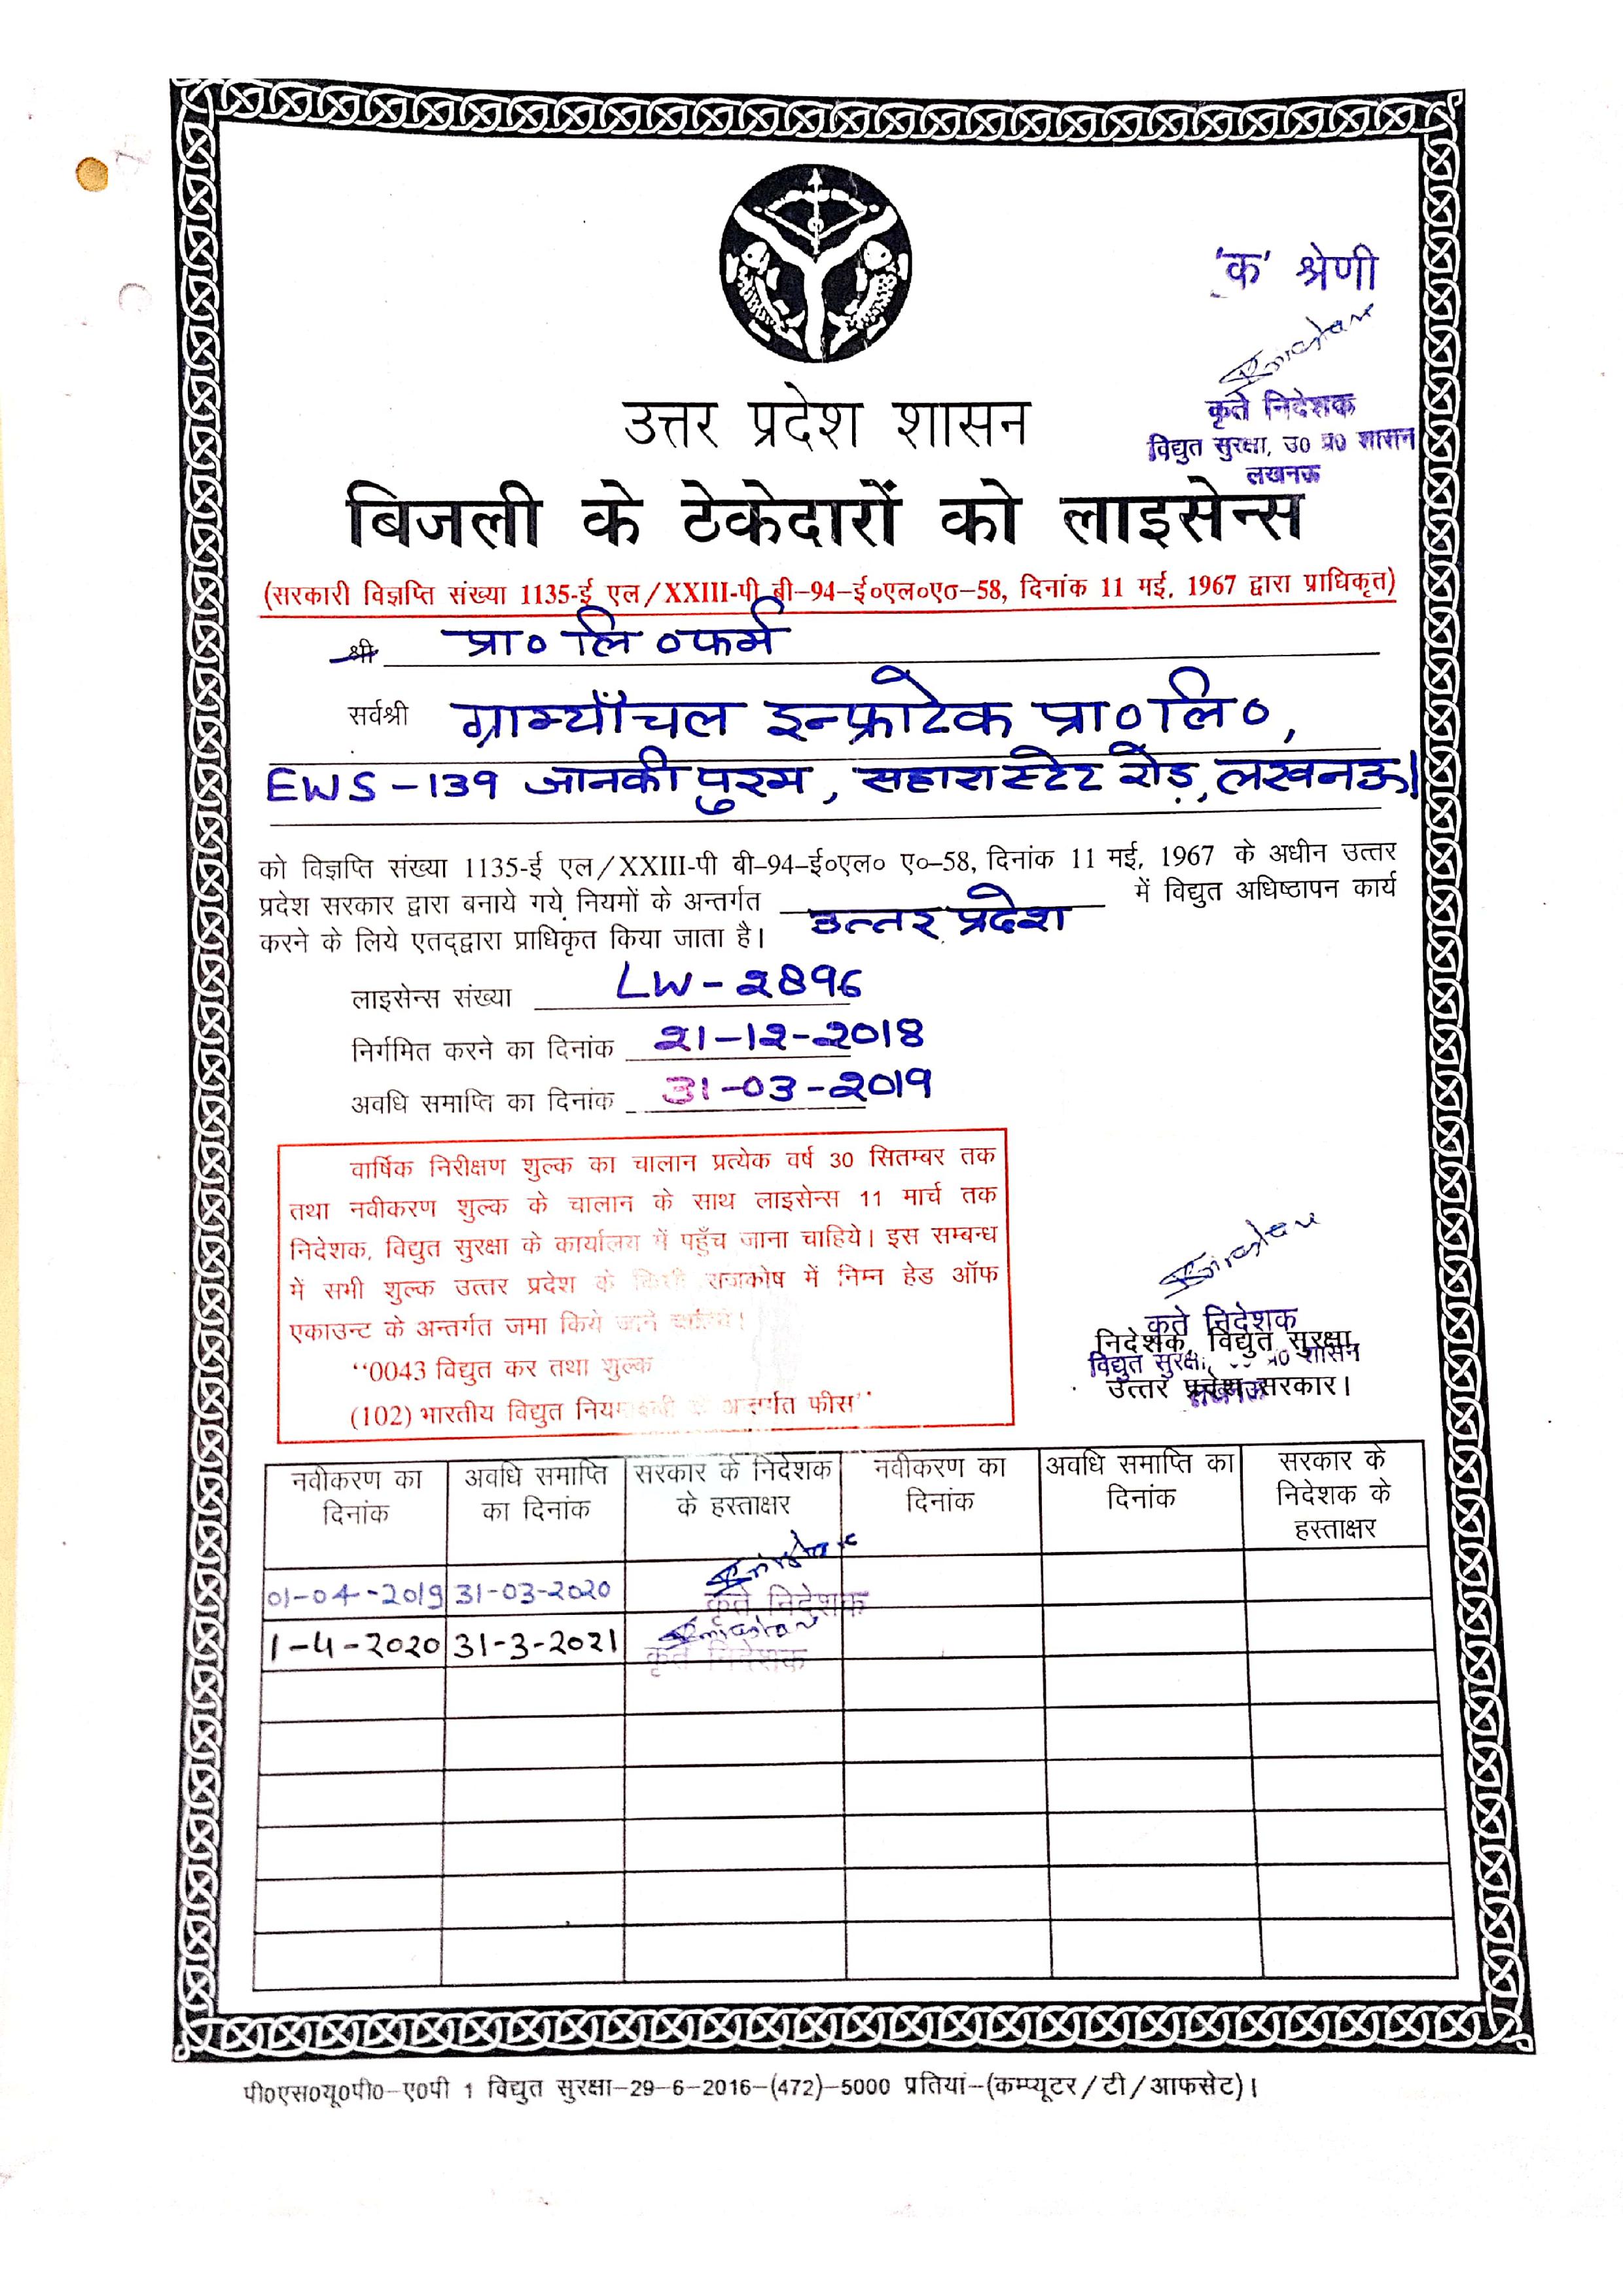 'क' श्रेणी
कृते निदेशक
विद्युत सुरक्षा, उ0 प्र0 शासन
लखनऊ
उत्तर प्रदेश शासन
बिजली के ठेकेदारों को लाइसेन्स
(सरकारी विज्ञप्ति संख्या 1135-ई एल/XXIII-पी बी–94–ई०एल०ए०–58, दिनांक 11 मई, 1967 द्वारा प्राधिकृत)
श्री प्रा० लि० फर्म
सर्वश्री ग्राम्याँचल इन्फ्राटेक प्रा० लि०,
EWS-139 जानकीपुरम, सहारा स्टेट रोड़, लखनऊ।
को विज्ञप्ति संख्या 1135-ई एल/XXIII-पी बी–94–ई०एल० ए०–58, दिनांक 11 मई, 1967 के अधीन उत्तर
प्रदेश सरकार द्वारा बनाये गये नियमों के अन्तर्गत उत्तर प्रदेश में विद्युत अधिष्ठापन कार्य
करने के लिये एतद्द्वारा प्राधिकृत किया जाता है।
लाइसेन्स संख्या LW-2896
निर्गमित करने का दिनांक 21-12-2018
अवधि समाप्ति का दिनांक 31-03-2019
वार्षिक निरीक्षण शुल्क का चालान प्रत्येक वर्ष 30 सितम्बर तक
तथा नवीकरण शुल्क के चालान के साथ लाइसेन्स 11 मार्च तक
निदेशक, विद्युत सुरक्षा के कार्यालय में पहुँच जाना चाहिये। इस सम्बन्ध
में सभी शुल्क उत्तर प्रदेश के किसी राजकोष में निम्न हेड ऑफ
एकाउन्ट के अन्तर्गत जमा किये जाने चाहिये।
"0043 विद्युत कर तथा शुल्क
(102) भारतीय विद्युत नियमावली के अन्तर्गत फीस"
कृते निदेशक
निदेशक, विद्युत सुरक्षा,
विद्युत सुरक्षा, प्र0 शासन
उत्तर प्रदेश सरकार।
लखनऊ
नवीकरण का दिनांक अवधि समाप्ति का दिनांक सरकार के निदेशक के हस्ताक्षर नवीकरण का दिनांक अवधि समाप्ति का दिनांक सरकार के निदेशक के हस्ताक्षर
01-04-2019 31-03-2020 कृते निदेशक
1-4-2020 31-3-2021 कृते निदेशक
पी0एस0यू0पी0–ए0पी 1 विद्युत सुरक्षा–29–6–2016–(472)–5000 प्रतियां–(कम्प्यूटर/टी/आफसेट)।